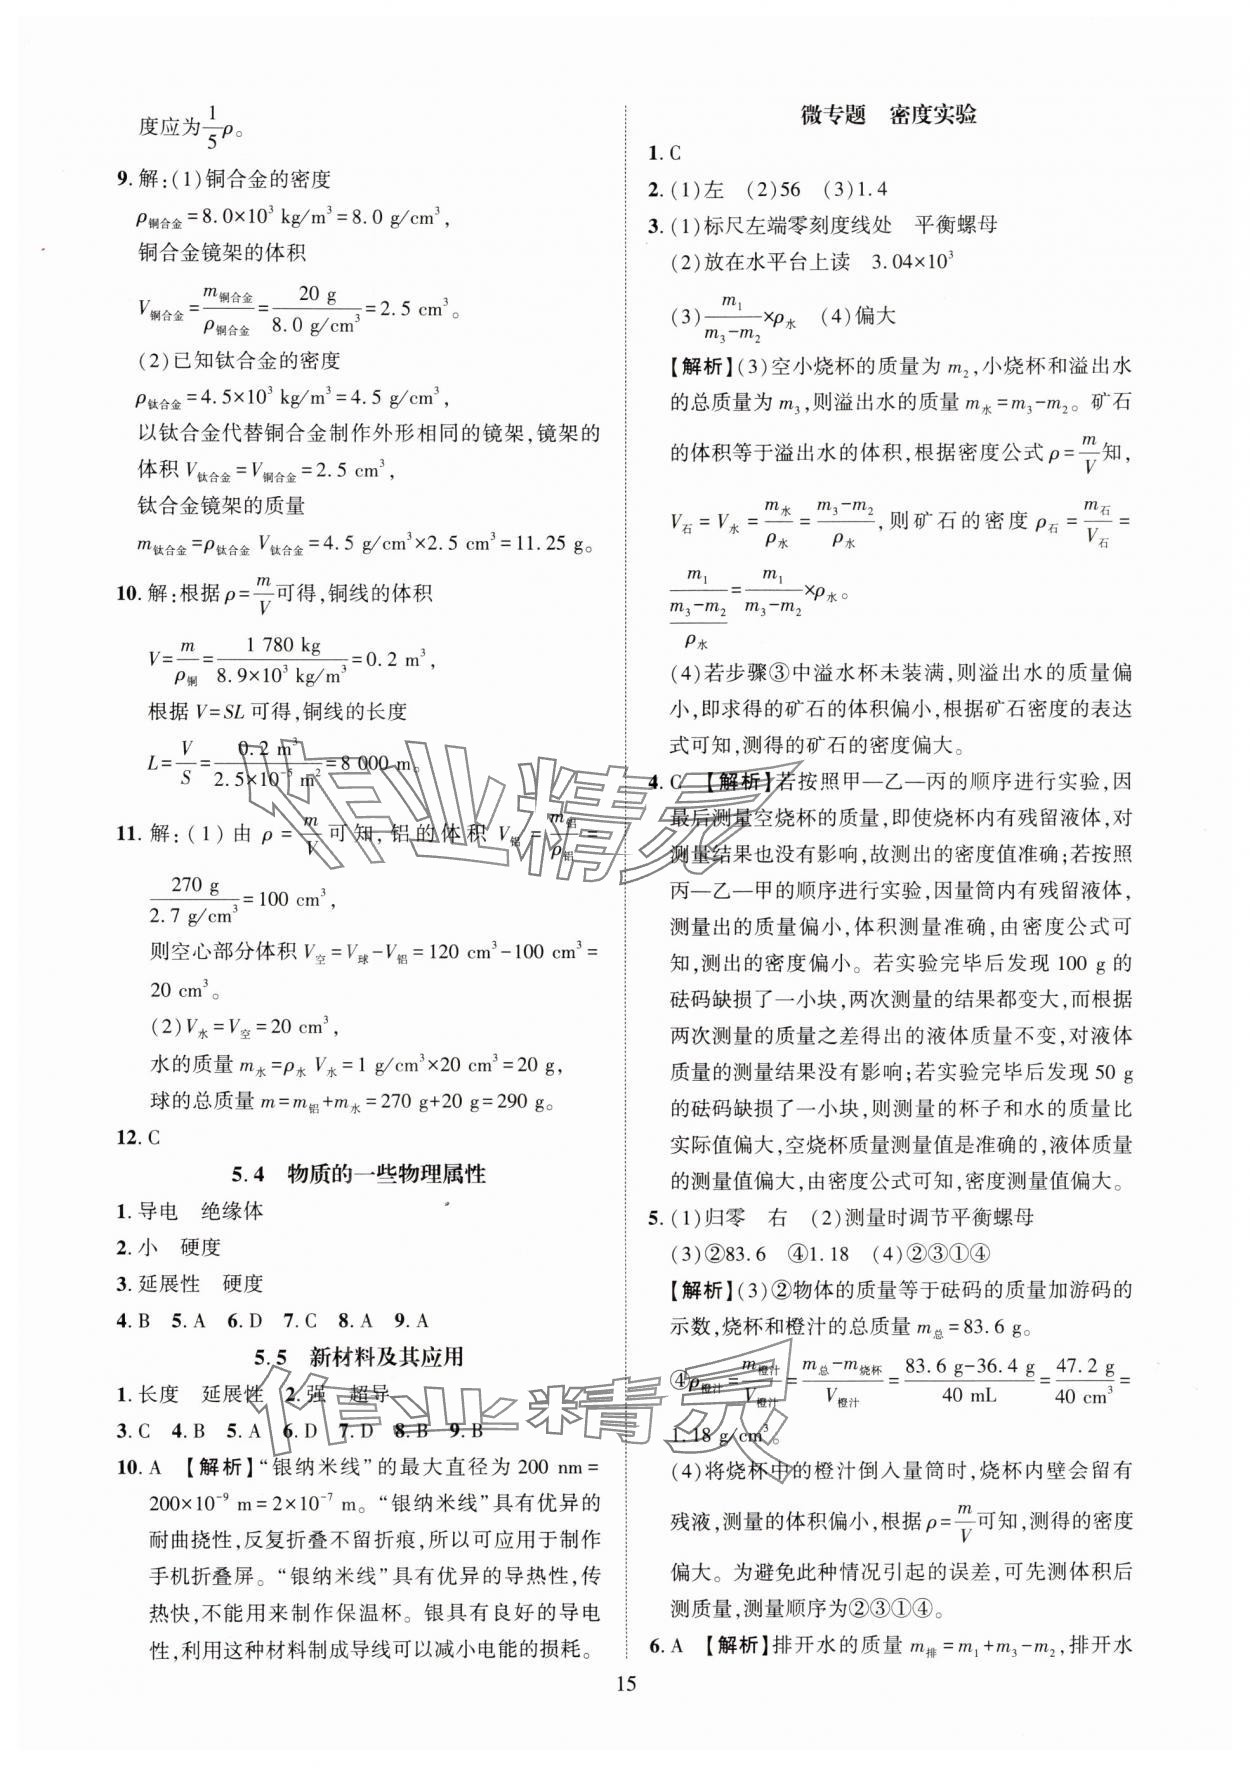 度应为1/5ρ。
9. 解:(1)铜合金的密度
ρ铜合金=8.0×10³ kg/m³=8.0 g/cm³,
铜合金镜架的体积
V铜合金=m铜合金/ρ铜合金=20 g/8.0 g/cm³=2.5 cm³。
(2)已知钛合金的密度
ρ钛合金=4.5×10³ kg/m³=4.5 g/cm³,
以钛合金代替铜合金制作外形相同的镜架,镜架的
体积V钛合金=V铜合金=2.5 cm³,
钛合金镜架的质量
m钛合金=ρ钛合金 V钛合金=4.5 g/cm³×2.5 cm³=11.25 g。
10. 解:根据ρ=m/V可得,铜线的体积
V=m/ρ铜=1 780 kg/8.9×10³ kg/m³=0.2 m³,
根据V=SL可得,铜线的长度
L=V/S=0.2 m³/2.5×10⁻⁵ m²=8 000 m。
11. 解:(1)由ρ=m/V可知,铝的体积V铝=m铝/ρ铝=
270 g/2.7 g/cm³=100 cm³,
则空心部分体积V空=V球-V铝=120 cm³-100 cm³=
20 cm³。
(2)V水=V空=20 cm³,
水的质量m水=ρ水 V水=1 g/cm³×20 cm³=20 g,
球的总质量m=m铝+m水=270 g+20 g=290 g。
12. C
5.4 物质的一些物理属性
1. 导电 绝缘体
2. 小 硬度
3. 延展性 硬度
4. B 5. A 6. D 7. C 8. A 9. A
5.5 新材料及其应用
1. 长度 延展性 2. 强 超导
3. C 4. B 5. A 6. D 7. D 8. B 9. B
10. A 【解析】“银纳米线”的最大直径为200 nm=
200×10⁻⁹ m=2×10⁻⁷ m。“银纳米线”具有优异的
耐曲挠性,反复折叠不留折痕,所以可应用于制作
手机折叠屏。“银纳米线”具有优异的导热性,传
热快,不能用来制作保温杯。银具有良好的导电
性,利用这种材料制成导线可以减小电能的损耗。
微专题 密度实验
1. C
2. (1)左 (2)56 (3)1.4
3. (1)标尺左端零刻度线处 平衡螺母
(2)放在水平台上读 3.04×10³
(3)m₁/(m₃-m₂)×ρ水 (4)偏大
【解析】(3)空小烧杯的质量为m₂,小烧杯和溢出水
的总质量为m₃,则溢出水的质量m水=m₃-m₂。矿石
的体积等于溢出水的体积,根据密度公式ρ=m/V知,
V石=V水=m水/ρ水=(m₃-m₂)/ρ水,则矿石的密度ρ石=m石/V石=
m₁/((m₃-m₂)/ρ水)=m₁/(m₃-m₂)×ρ水。
(4)若步骤③中溢水杯未装满,则溢出水的质量偏
小,即求得的矿石的体积偏小,根据矿石密度的表达
式可知,测得的矿石的密度偏大。
4. C 【解析】若按照甲—乙—丙的顺序进行实验,因
最后测量空烧杯的质量,即使烧杯内有残留液体,对
测量结果也没有影响,故测出的密度值准确;若按照
丙—乙—甲的顺序进行实验,因量筒内有残留液体,
测量出的质量偏小,体积测量准确,由密度公式可
知,测出的密度偏小。若实验完毕后发现100 g的
砝码缺损了一小块,两次测量的结果都变大,而根据
两次测量的质量之差得出的液体质量不变,对液体
质量的测量结果没有影响;若实验完毕后发现50 g
的砝码缺损了一小块,则测量的杯子和水的质量比
实际值偏大,空烧杯质量测量值是准确的,液体质量
的测量值偏大,由密度公式可知,密度测量值偏大。
5. (1)归零 右 (2)测量时调节平衡螺母
(3)②83.6 ④1.18 (4)②③①④
【解析】(3)②物体的质量等于砝码的质量加游码的
示数,烧杯和橙汁的总质量m总=83.6 g。
④ρ橙汁=m橙汁/V橙汁=(m总-m烧杯)/V橙汁=(83.6 g-36.4 g)/40 mL=47.2 g/40 cm³=
1.18 g/cm³。
(4)将烧杯中的橙汁倒入量筒时,烧杯内壁会留有
残液,测量的体积偏小,根据ρ=m/V可知,测得的密度
偏大。为避免此种情况引起的误差,可先测体积后
测质量,测量顺序为②③①④。
6. A 【解析】排开水的质量m排=m₁+m₃-m₂,排开水
15
作业精灵
作业精灵